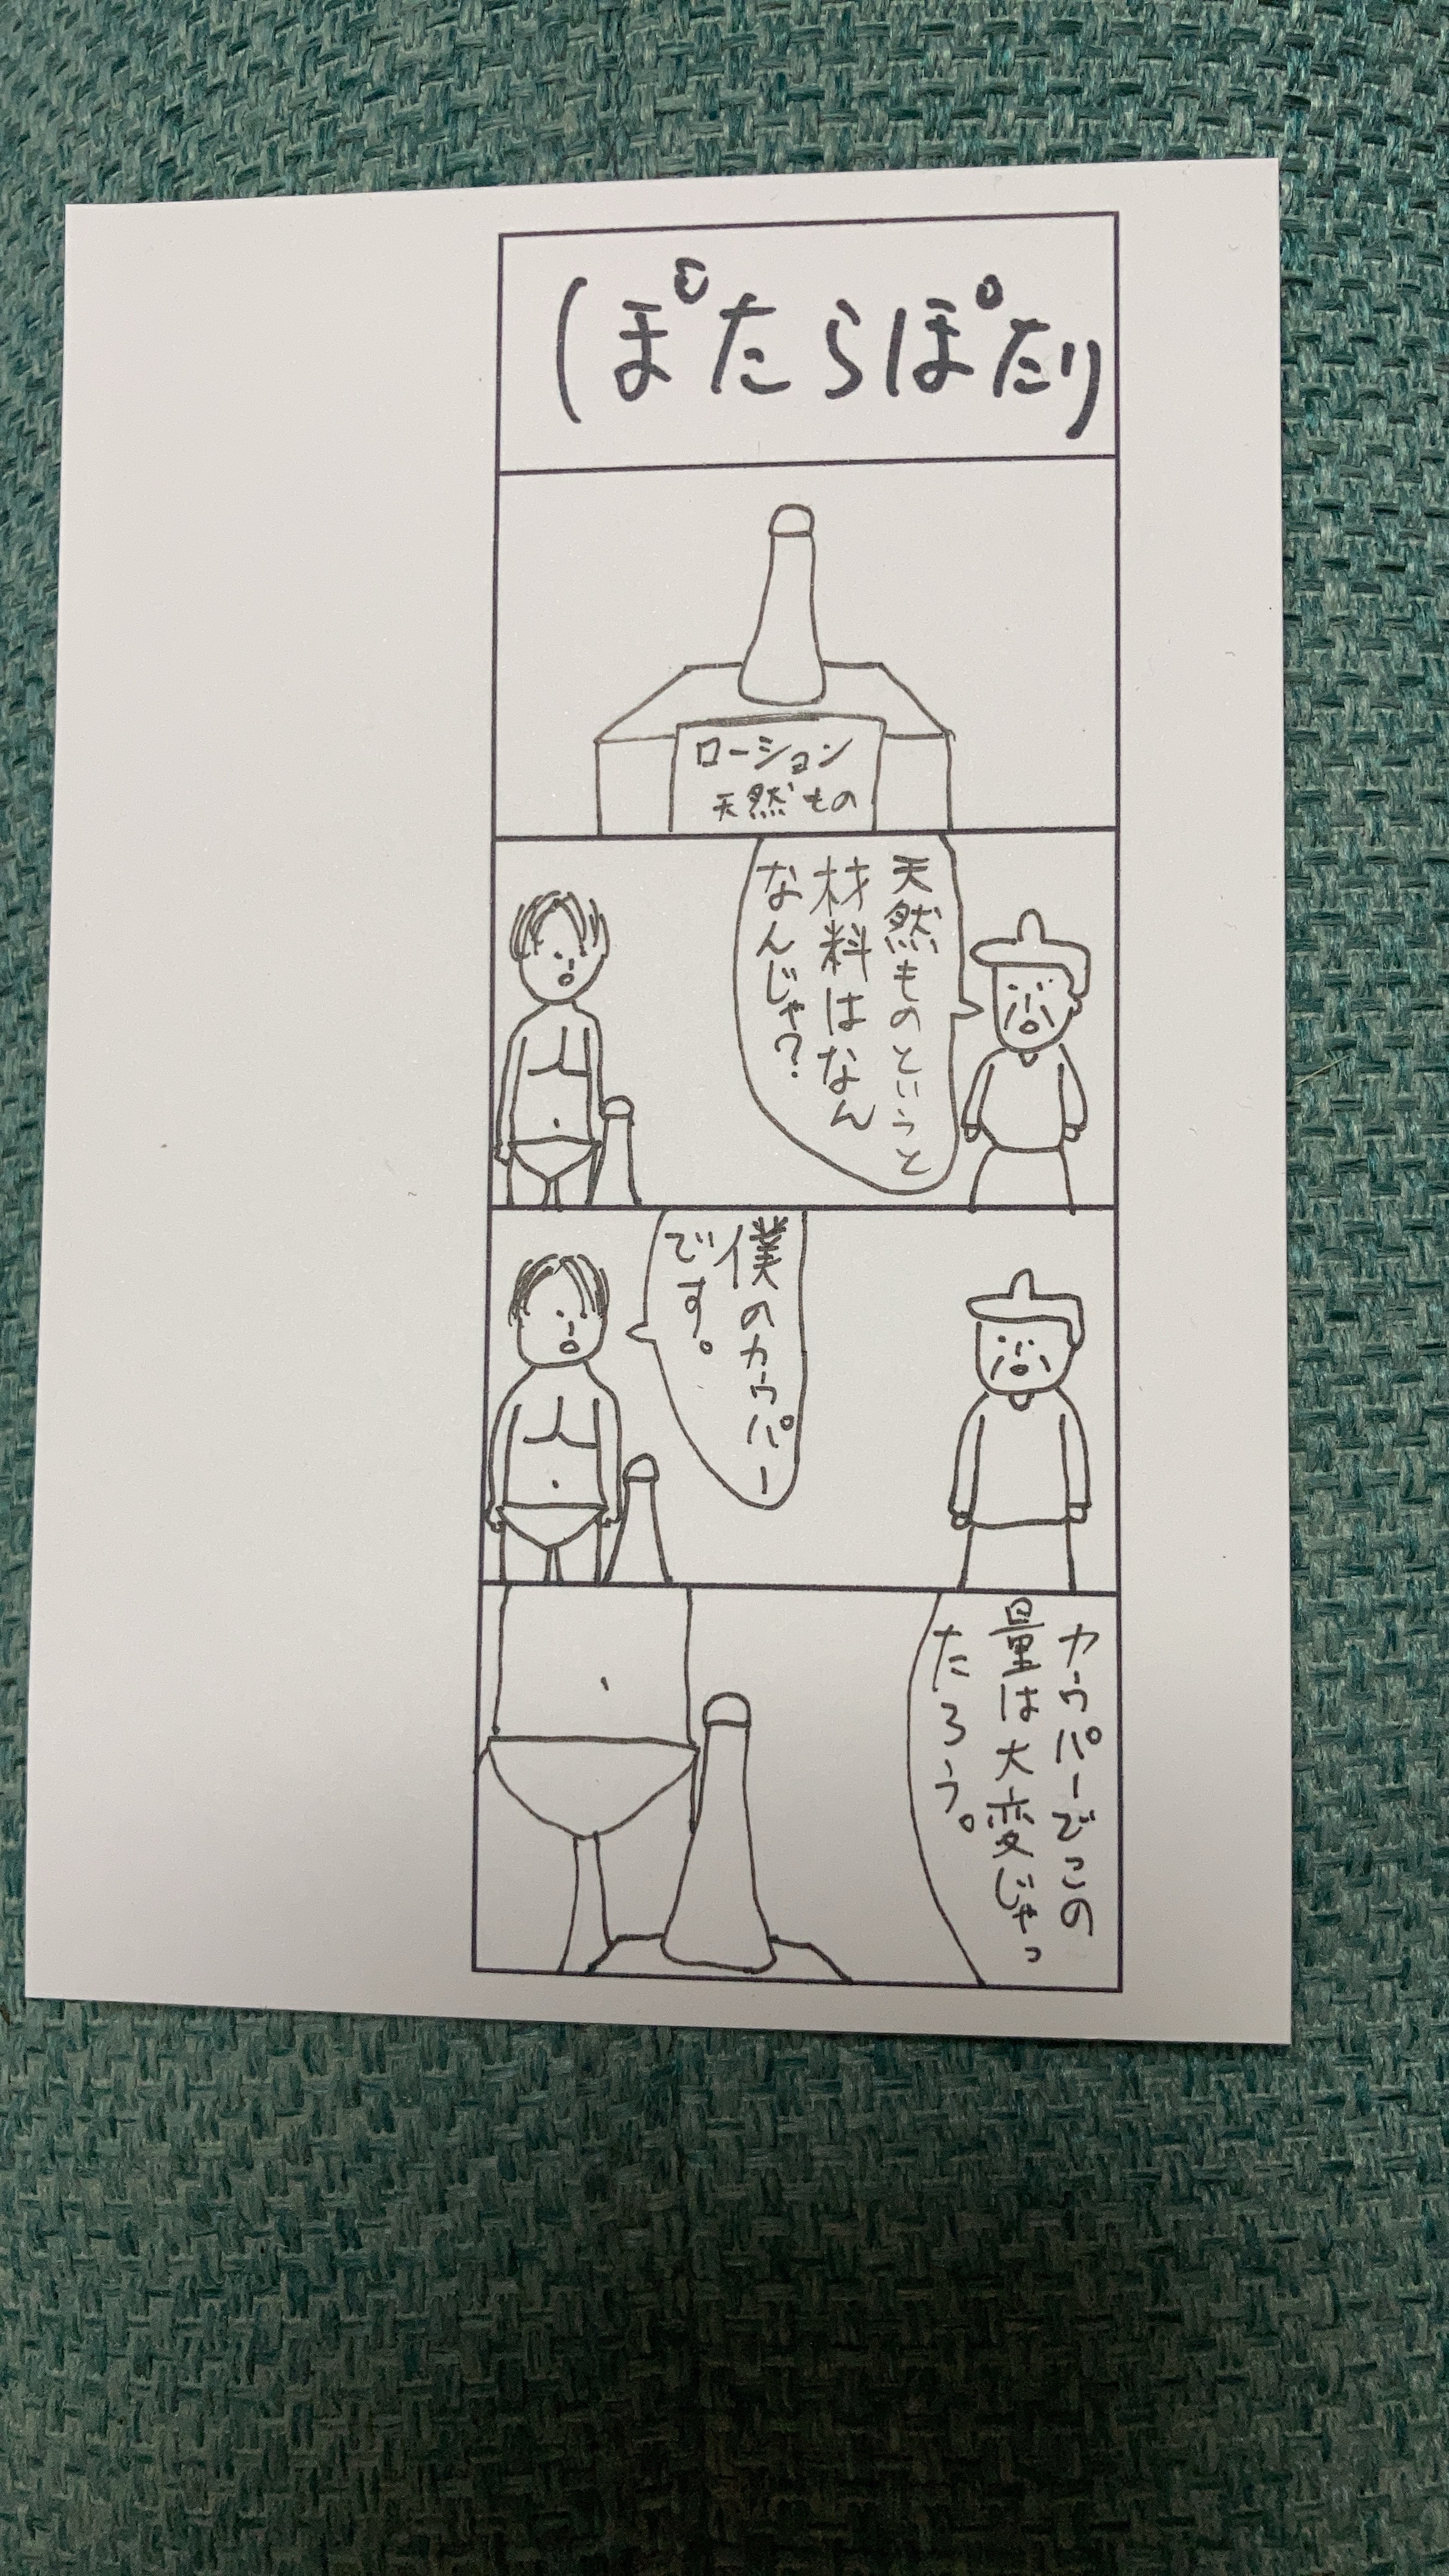 ぽたらぽたり
ローション
天然もの
天然ものというと
材料はなん
なんじゃ?
僕のカウパー
です。
カウパーでこの
量は大変じゃっ
たろう。